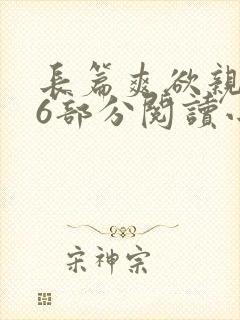 長篇爽欲親
6部分閱讀小
宋神宗